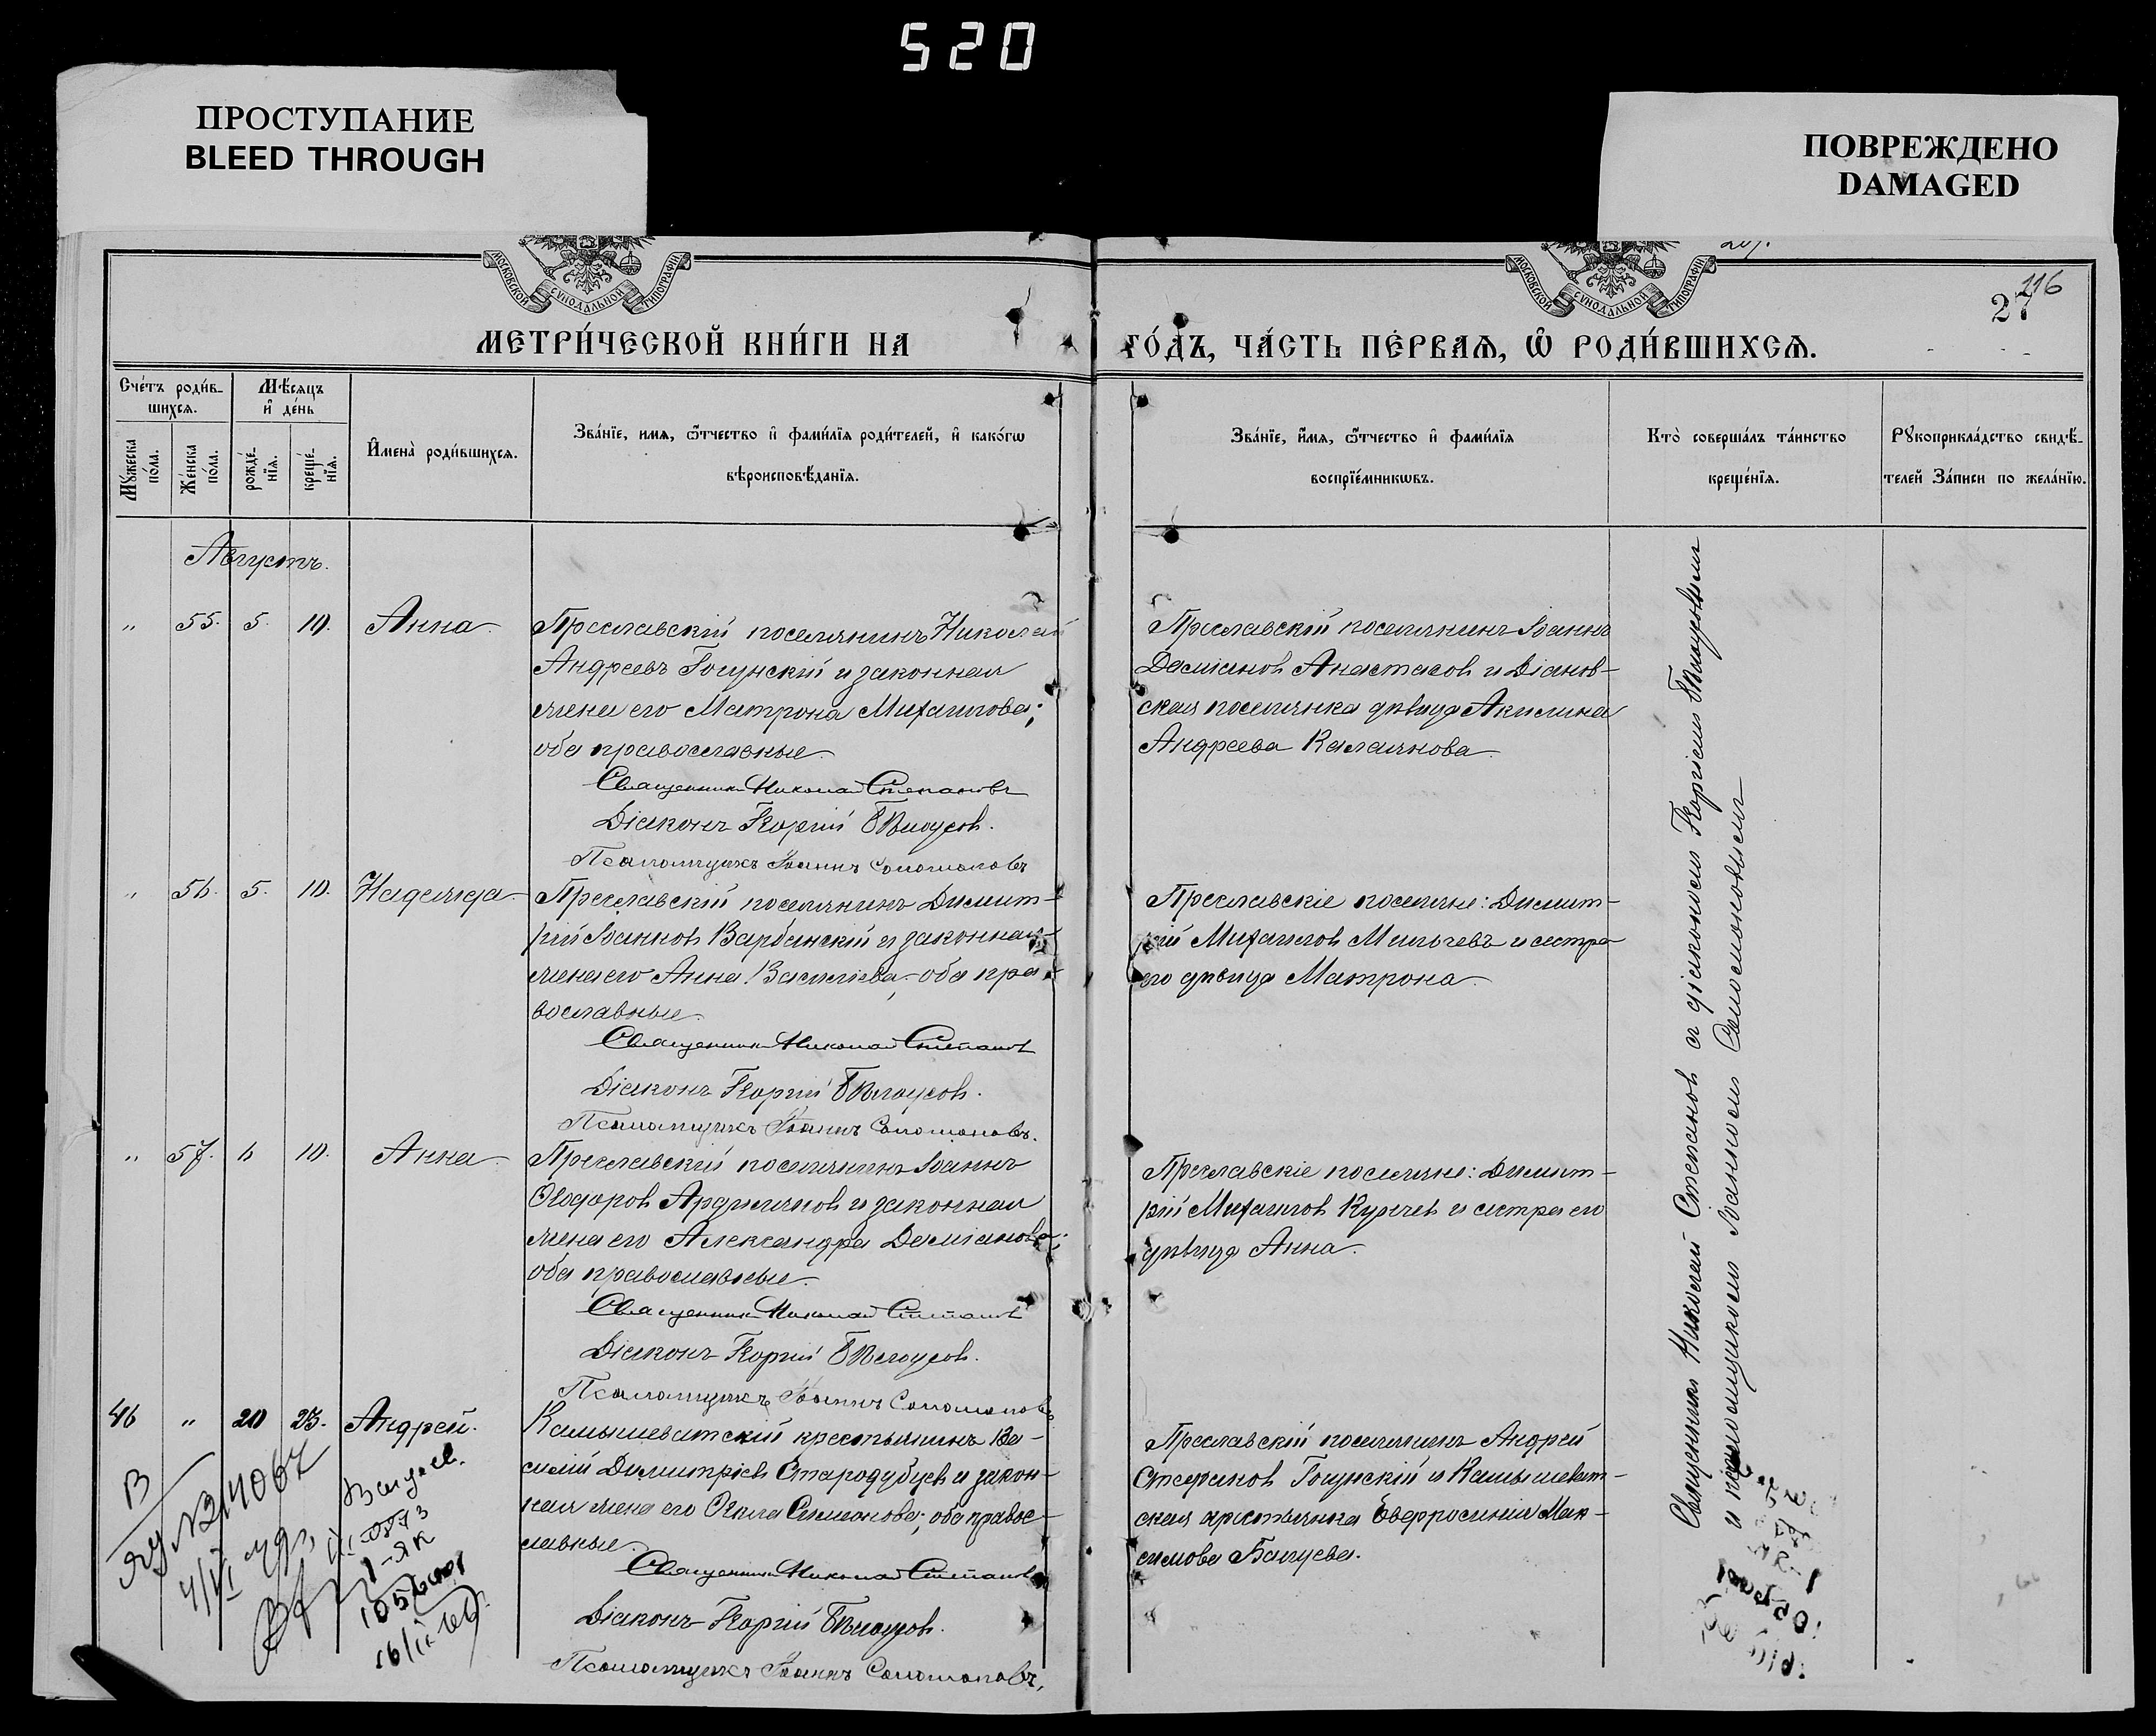 520
ПРОСТУПАНИЕ
BLEED THROUGH
ПОВРЕЖДЕНО
DAMAGED
МОСКОВСКОЙ СѴНОДАЛЬНОЙ ТИПОГРАФІИ
МОСКОВСКОЙ СѴНОДАЛЬНОЙ ТИПОГРАФІИ
116
27
МЕТРИ́ЧЕСКОЙ КНИ́ГИ НА
ГО́ДЪ, ЧА́СТЬ ПЕ́РВАѦ, Ѡ҆ РОДИ́ВШИХСѦ.
Сче́тъ роди́в-
шихсѧ.
Мѣ́сѧцъ
и҆ де́нь
Мꙋ́жеска
по́ла.
Же́нска
по́ла.
рожде́-
нїѧ.
креще́-
нїѧ.
И҆мена̀ роди́вшихсѧ.
Зва́нїе, имѧ, ѻ҆́тчество и҆ фами́лїѧ роди́телей, и҆ како́гѡ
вѣроисповѣ́данїѧ.
Зва́нїе, и҆́мѧ, ѻ҆́тчество и҆ фами́лїѧ
воспрїе́мникѡвъ.
Кто̀ соверша́лъ та́инство
креще́нїѧ.
Рꙋкоприкла́дство свидѣ́-
телей За́писи по жела́нїю.
Августъ.
" 55. 5. 10. Анна.
Преславскій поселянинъ Николай
Андреевъ Гогунскій и законная
жена его Матрона Михаилова;
оба православные.
Священникъ Николай Степановъ
Діаконъ Георгій Бѣлоусовъ.
Псаломщикъ Іоаннъ Соломоновъ
Преславскій поселянинъ Іоаннъ
Даміановъ Анастасовъ и Діанов-
ская поселянка дѣвица Акилина
Андреева Калаянова.
" 56. 5. 10. Надежда.
Преславскій поселянинъ Димит-
рій Іоанновъ Варбанскій и законная
жена его Анна Василіева, оба пра-
вославные.
Священникъ Николай Степановъ
Діаконъ Георгій Бѣлоусовъ.
Псаломщикъ Іоаннъ Соломоновъ.
Преславскіе поселяне: Димит-
рій Михаиловъ Мильчевъ и сестра
его дѣвица Матрона.
" 57. 6 10. Анна.
Преславскій поселянинъ Іоаннъ
Ѳеодоровъ Арджеляновъ и законная
жена его Александра Даміанова;
оба православные.
Священникъ Николай Степановъ
Діаконъ Георгій Бѣлоусовъ.
Псаломщикъ Іоаннъ Соломоновъ
Преславскіе поселяне: Димит-
рій Михаиловъ Курчевъ и сестра его
дѣвица Анна.
46 " 20 25. Андрей.
Камышеватскій крестьянинъ Ва-
силій Димитріевъ Стародубцевъ и закон-
ная жена его Ѳекла Симеонова; оба право-
славные.
Священникъ Николай Степановъ
Діаконъ Георгій Бѣлоусовъ.
Псаломщикъ Іоаннъ Соломоновъ.
Преславскій поселянинъ Андрей
Стефановъ Гогунскій и Камышеват-
ская крестьянка Евфросинія Мак-
симова Багуева.
Священникъ Николай Степановъ съ діакономъ Георгіемъ Бѣлоусовымъ
и псаломщикомъ Іоанномъ Соломоновымъ